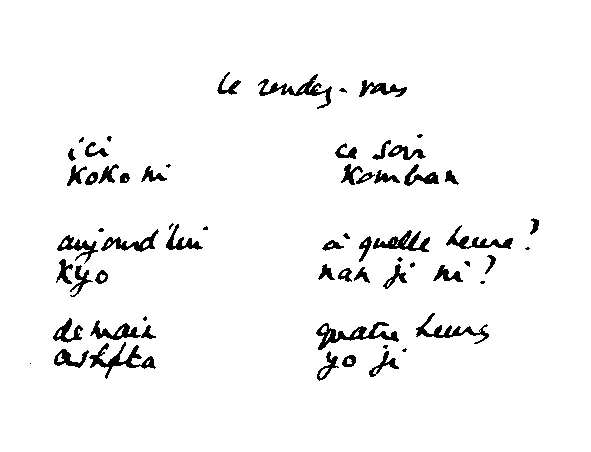 le rendez-vous
ici
koko ni
ce soir
Komban
aujourd'hui
Kyo
à quelle heure?
nan ji ni?
demain
ashita
quatre heures
yo ji